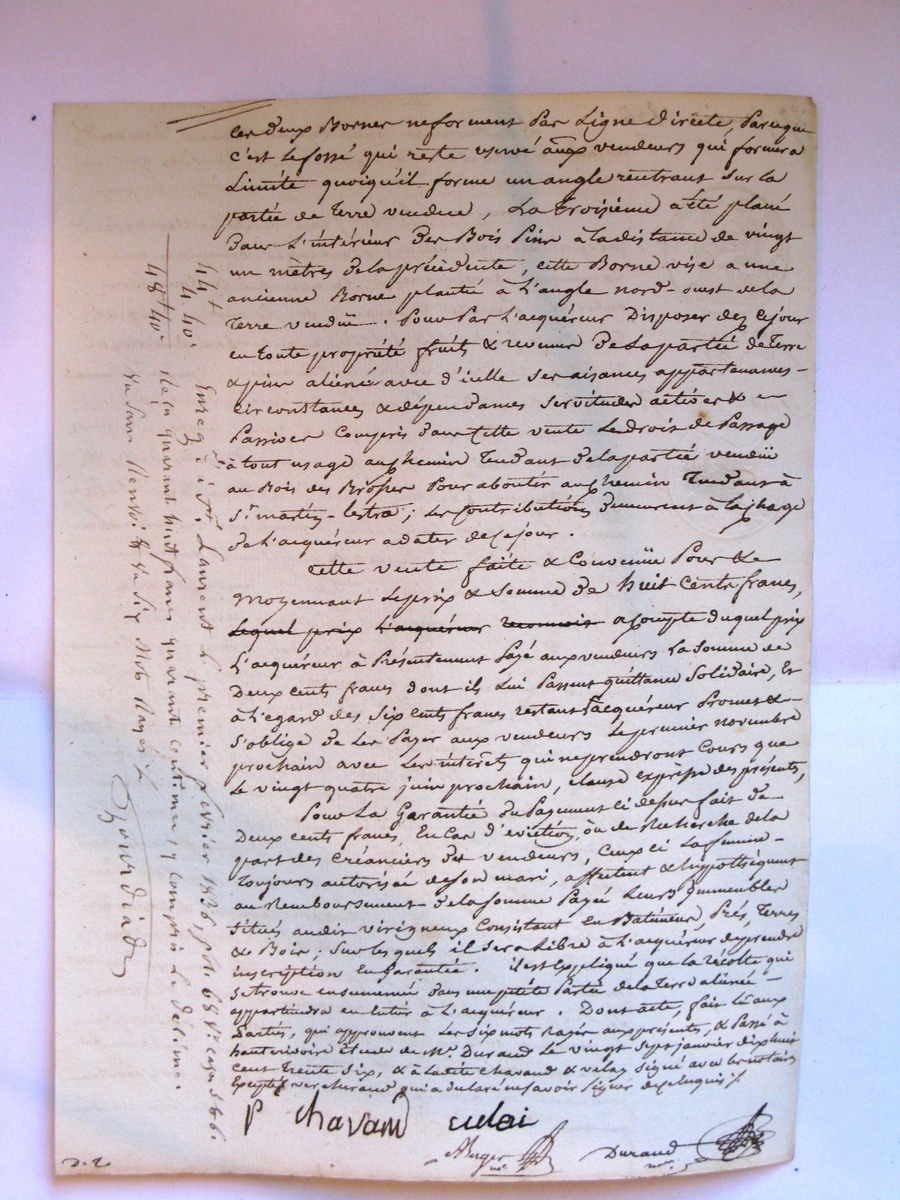 ces deux Bornes ne forment Pas Ligne directe, Parceque
c'est Le fossé qui reste reservé aux vendeurs qui formera
Limite quoiqu'il forme un angle rentrant sur La
partie de Terre vendue, La troisième a été planté
dans L'intérieur des Bois Pins à la distance de vingt
un mètres de la précédente, cette Borne vise a une
ancienne Borne plantée à L'angle nord-ouest de la
Terre vendüe. Pour Par L'acquéreur Disposer dez cejour
en toute propriété fruits & revenus de La partie de Terre
& pins aliénés avec d'icelle ses aisances appartenances
circonstances & dépendances servitudes actives &
Passives Compris dans cette vente Le droit de Passage
à tout usage au chemin Tendant de la partie vendüe
au Bois des Brosses Pour aboutir au chemin Tendant à
St. martin-lestra; Les contributions demeurent à la charge
de L'acquéreur a dater de ce jour.
Cette vente faite & Convenüe Pour &
Moyennant Le prix & Somme de huit cents francs,
Lequel prix L'acquéreur reconnoit acompte duquel prix
L'acquéreur à Présentement Payé aux vendeurs La Somme de
Deux cents francs dont ils Lui Passent quittance Solidaire, Et
à L'egard des Six cents francs restant L'acquéreur Promet &
S'oblige de Les Payer aux vendeurs Le premier novembre
prochain avec Les intérêts qui ne prendront Cours que
Le vingt quatre juin prochain, clause expresse des présentes,
Pour La Garantie du Payement ci dessus fait de
Deux cents francs, En Cas d'eviction, ou de Recherche de la
part des Créanciers des vendeurs, Ceux ci La femme
Toujours autorisée de son mari, affectent & hypothèquent
au Remboursement de la somme Payé Leurs Immeubles
Situés audit virigneux Consistant En Batiments, Prés, Terres
& Bois; Sur Lesquels il Sera Libre à L'acquéreur de prendre
inscription En Garantie. il est Expliqué que La récolte qui
Se trouve ensemencée dans une petite Partie de la Terre aliénée
appartiendra en entier à L'acquéreur. Dont acte, fait Lû aux
Parties, qui approuvent Les Six mots rayés aux présentes, & Passé à
hauterivoire Etude de Me. Durand Le vingt sept janvier dix huit
Cent Trente Six, & à Ladite Chavand & velay signé avec Les notaires
Excepté vercherand qui a declaré ne savoir Signer de ce Enquis ./.
P chavand velai
Berger
Durand
44f
4.40c
48f 40c
Enreg. à St. Laurent Le premier fevrier 1836, fol. 68 Vo. case 5 & 6.
Reçu quarante huit francs quarante centimes y compris Le décime.
Vu Sans Renvoi & de Six Mots Rayés
D. 2